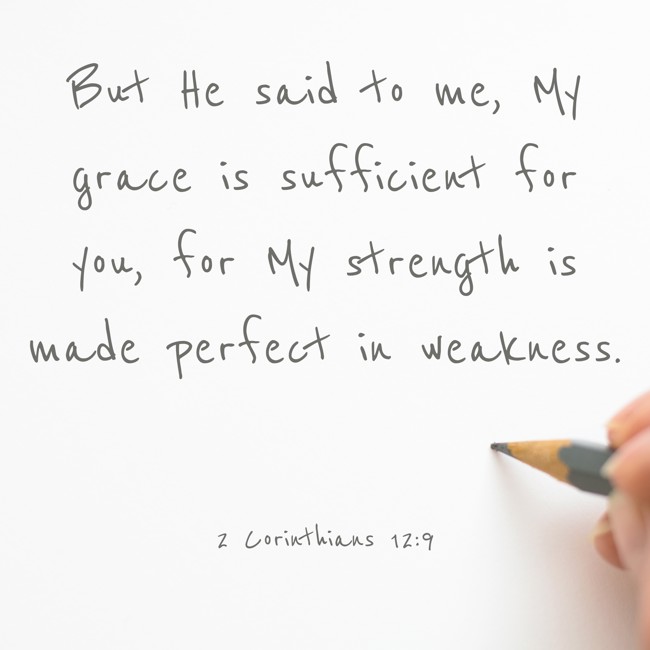 But He said to me, My
grace is sufficient for
you, for My strength is
made perfect in weakness.
2 Corinthians 12:9